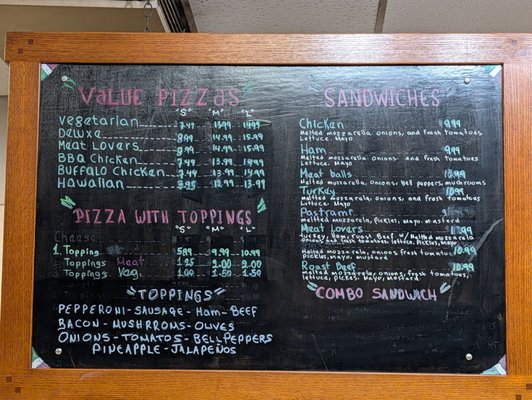 Value Pizzas
"S" "M" "L"
Vegetarian
Deluxe 14.99 15.99
Meat Lovers 8.99 14.99 15.99
BBQ Chicken 7.49 13.49 14.99
Buffalo Chicken 7.49 13.49 14.99
Hawaiian 12.99 13.99
Pizza with Toppings
"S" "M" "L"
1 Topping 5.99 9.99 10.99
Toppings Meat 1.25 2.00 2.00
Toppings Vag. 1.00 1.50 1.50
"Toppings"
Pepperoni - Sausage - Ham - Beef
Bacon - Mushrroms - Olves
Onions - Tomatos - Bell Peppers
Pineapple - Jalapeños
Sandwiches
Chicken 9.99
Melted mozzarella, onions, and fresh tomatoes
Lettuce, Mayo
Ham 9.99
Melted mozzarella onions and fresh tomatoes
Lettuce, Mayo
Meat balls
Melted mozzarella, Onions, bell peppers, mushrooms
Turkey 10.99
Melted mozzarella, onions, and fresh tomatoes
Lettuce Mayo
Pastrami
Melted mozzarella, Pickles, Mayo, Mustard
Meat Lovers
Turkey, Ham, roast Beef w/ Melted mozzarella
onions and fresh tomatoes, lettuce, Pickles, Mayo
10.99
melted mozzarella, onions fresh tomatoes
pickles, mayo, mustard
Roast Beef 10.99
melted mozzarella, onions, fresh tomatoes,
lettuce, pickes, Mayo, mustard
"Combo Sandwich"